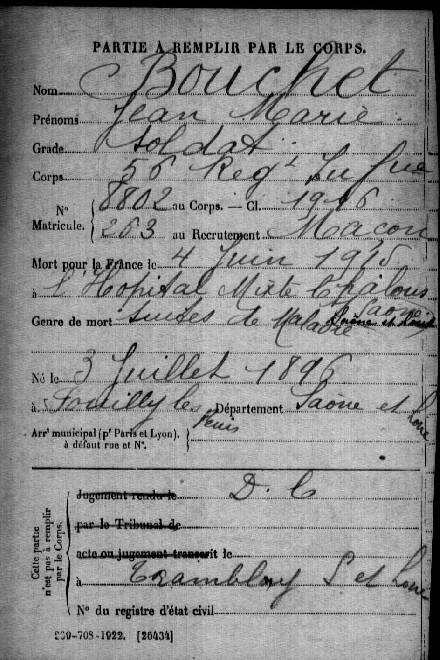 PARTIE A REMPLIR PAR LE CORPS.
Nom Bouchet
Prénoms Jean Marie
Grade Soldat
Corps 56 Regt Infrie
N° 8802 au Corps. — Cl. 1916
Matricule. 263 au Recrutement Macon
Mort pour la France le 4 Juin 1915
à l'Hopital Mixte Chalons
s Saone
Genre de mort Suites de Maladie Saône et Loire
Né le 3 Juillet 1896
à Pouilly les Département Saône et Loire
Arrt municipal (pr Paris et Lyon),
à défaut rue et N°.
Cette partie n'est pas à remplir par le Corps.
Jugement rendu le D. C
par le Tribunal de
acte ou jugement transcrit le
à Tramblay S et Loire
N° du registre d'état civil
239-708-1922. [26434]